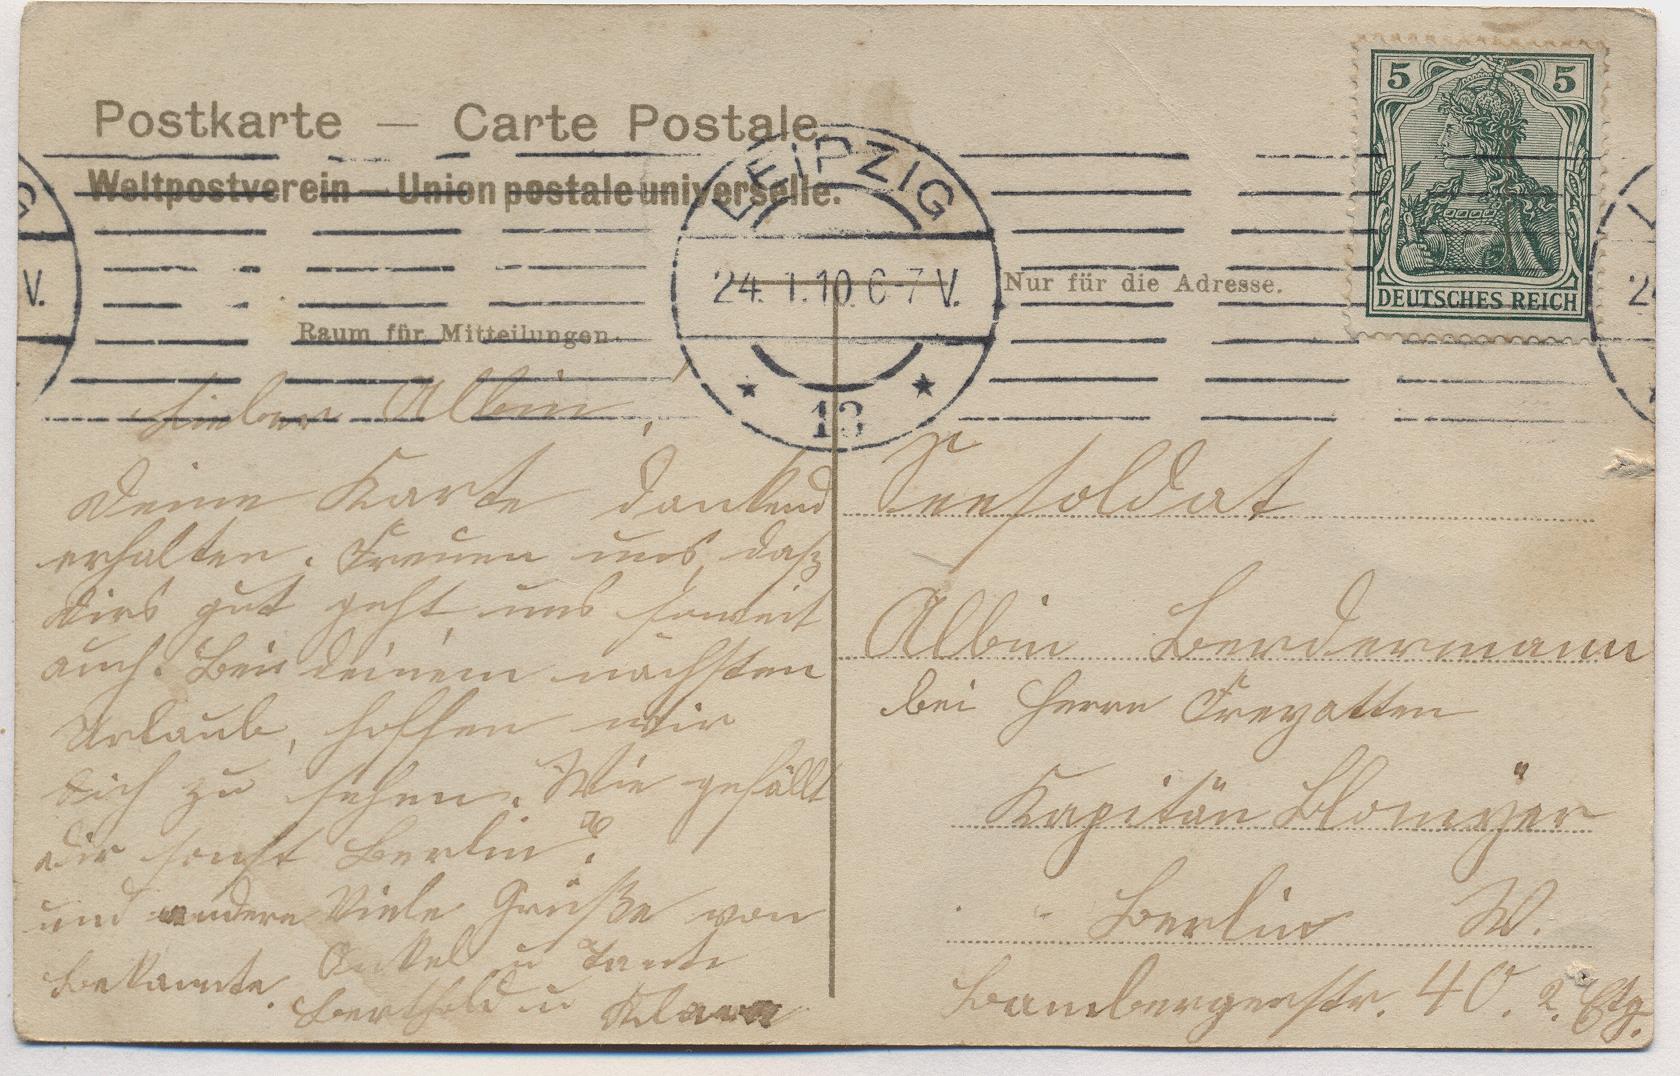 Postkarte — Carte Postale.
Weltpostverein — Union postale universelle.
LEIPZIG
24. 1. 10. 6-7 V.
13
G
V.
L
24
5 5
DEUTSCHES REICH
Nur für die Adresse.
Raum für Mitteilungen.
Lieber Albin,
Deine Karte dankend
erhalten. Freuen uns, daß
Dirs gut geht, uns soweit
auch. Bei deinem nächsten
Urlaub, hoffen wir
Dich zu sehen. Wie gefällt
dir sonst Berlin?
Viele Grüße von
Onkel u Tante
Berthold u Klara
und andere
Bekannte.
Seesoldat
Albin Berdermann
bei Herrn
Kapitän Blomeÿer
Berlin W.
Bambergerstr. 40. 2. Etg.